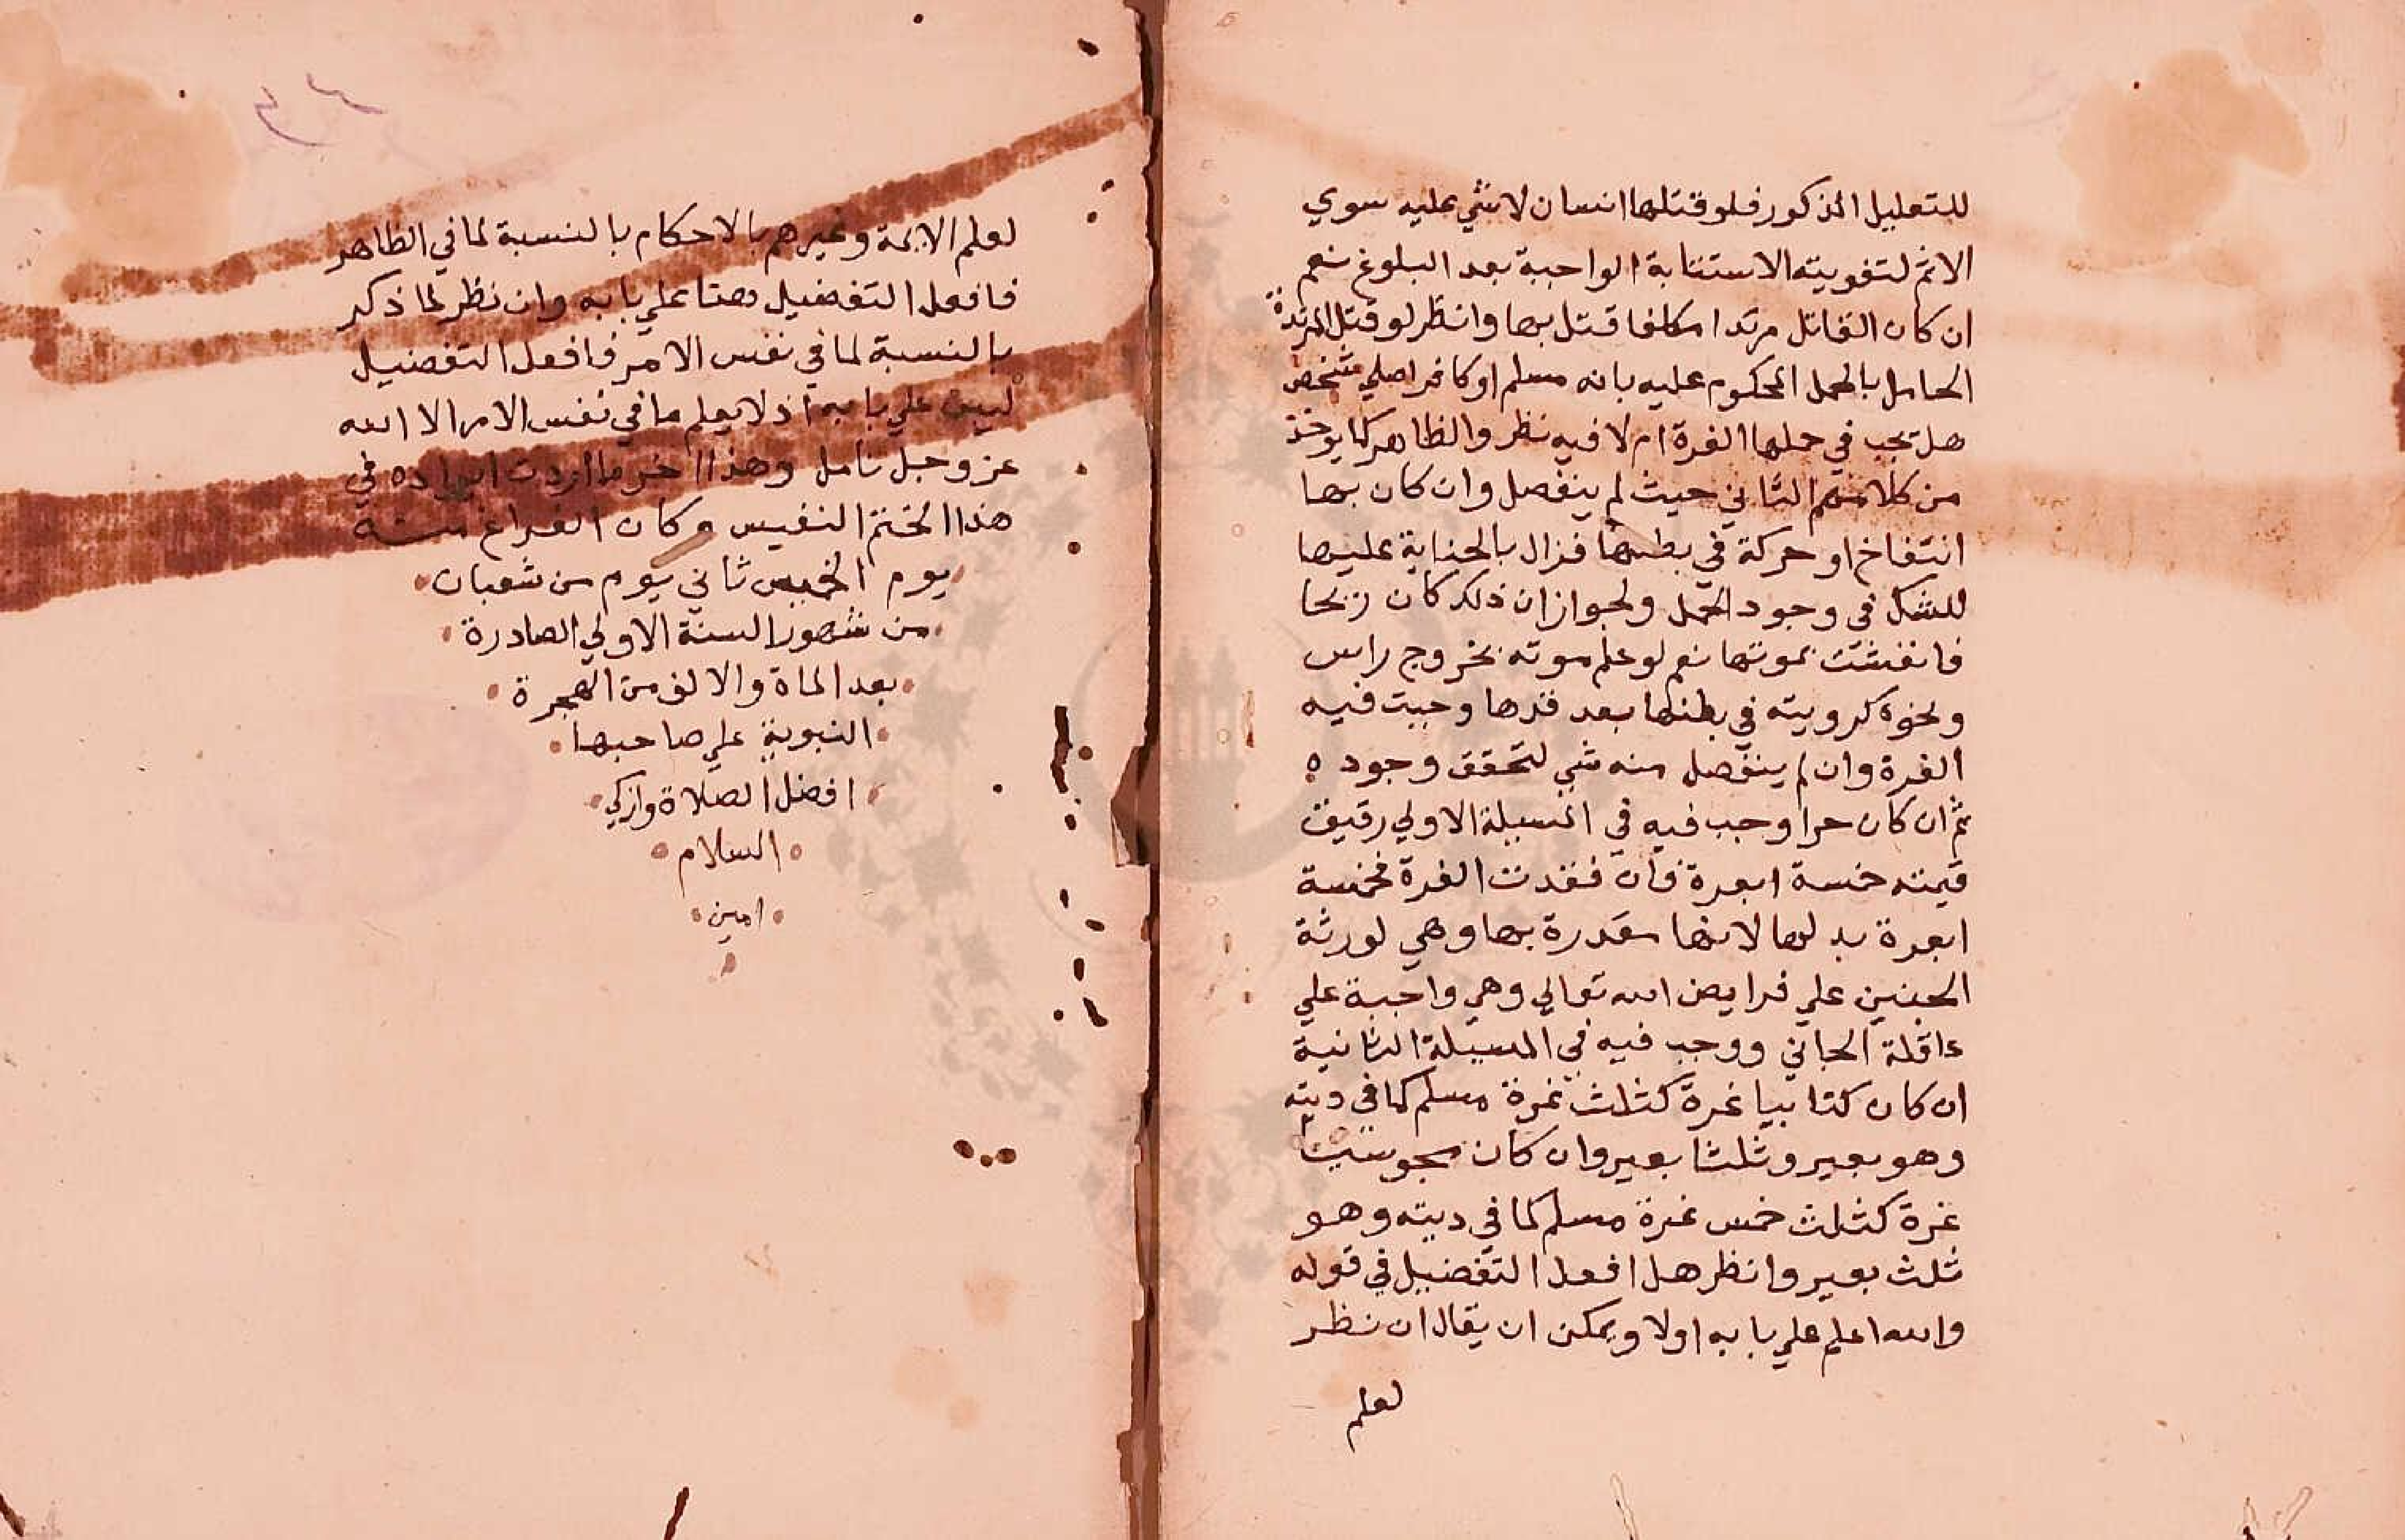 للتعليل المذكور فلو قتلها انسان لا شي عليه سوي
الاثم لتفويته الاستتابة الواجبة بعد البلوغ نعم
ان كان القاتل مرتدا مكلفا قتل بها وانظر لو قتل المرتدة
الحامل بالحمل المحكوم عليه بانه مسلم او كافر اصلي شخص
هل تجب في حملها الغرة ام لا فيه نظر والظاهر كما يوخذ
من كلامهم الثاني حيث لم ينفصل وان كان بها
انتفاخ او حركة في بطنها فزال بالجناية عليها
للشك في وجود الحمل ولجواز ان ذلك كان ريحا
فانفشت بموتها نعم لو علم موته بخروج راس
ونحوه كرويته في بطنها بعد قدها وجبت فيه
الغرة وان لم ينفصل منه شي لتحقق وجوده
ثم ان كان حرا وجب فيه في المسيلة الاولي رقيق
قيمته خمسة ابعرة فان فقدت الغرة فخمسة
ابعرة بدلها لانها مقدرة بها وهي لورثة
الجنين علي فرايض الله تعالي وهي واجبة علي
عاقلة الجاني ووجب فيه في المسيلة الثانية
ان كان كتابيا غرة كثلث غرة مسلم كما في ديته
وهو بعير وثلثا بعير وان كان مجوسيا
غرة كثلث خمس غرة مسلم كما في ديته وهو
ثلث بعير وانظر هل افعل التفضيل في قوله
والله اعلم علي بابه اولا ويمكن ان يقال ان نظر
لعلم
لعلم الايمة وغيرهم بالاحكام بالنسبة لما في الظاهر
فافعل التفضيل هنا علي بابه وان نظر لما ذكر
بالنسبة لما في نفس الامر فافعل التفضيل
ليس علي بابه اذ لا يعلم ما في نفس الامر الا الله
عز وجل تامل وهذا اخر ما اردت ايراده في
هذا الختم النفيس وكان الفراغ منه
يوم الخميس ثاني يوم من شعبان
من شهور السنة الاولي الصادرة
بعد الماة والالف من الهجرة
النبوية علي صاحبها
افضل الصلاة وازكي
السلام
امين